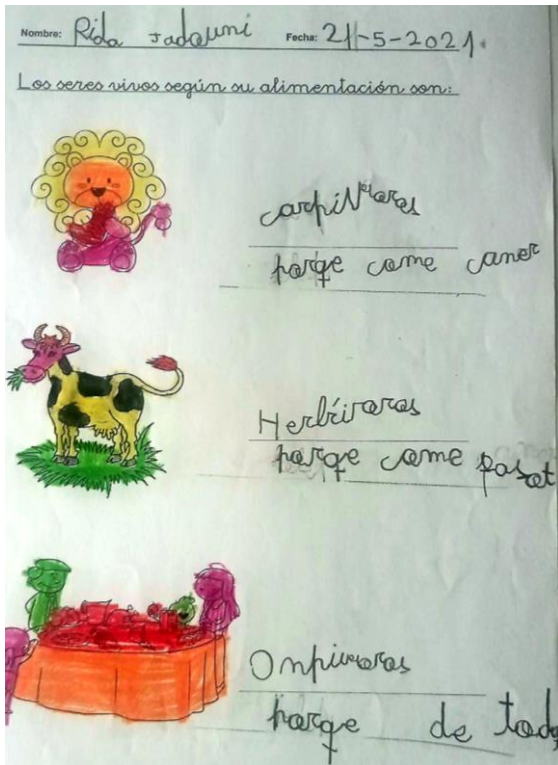 Nombre: Rida Jadauni Fecha: 21-5-2021.
Los seres vivos según su alimentación son:
carpívoros
porqe come caner
Herbívoros
porqe come pasat
Onpívoros
porqe de todo